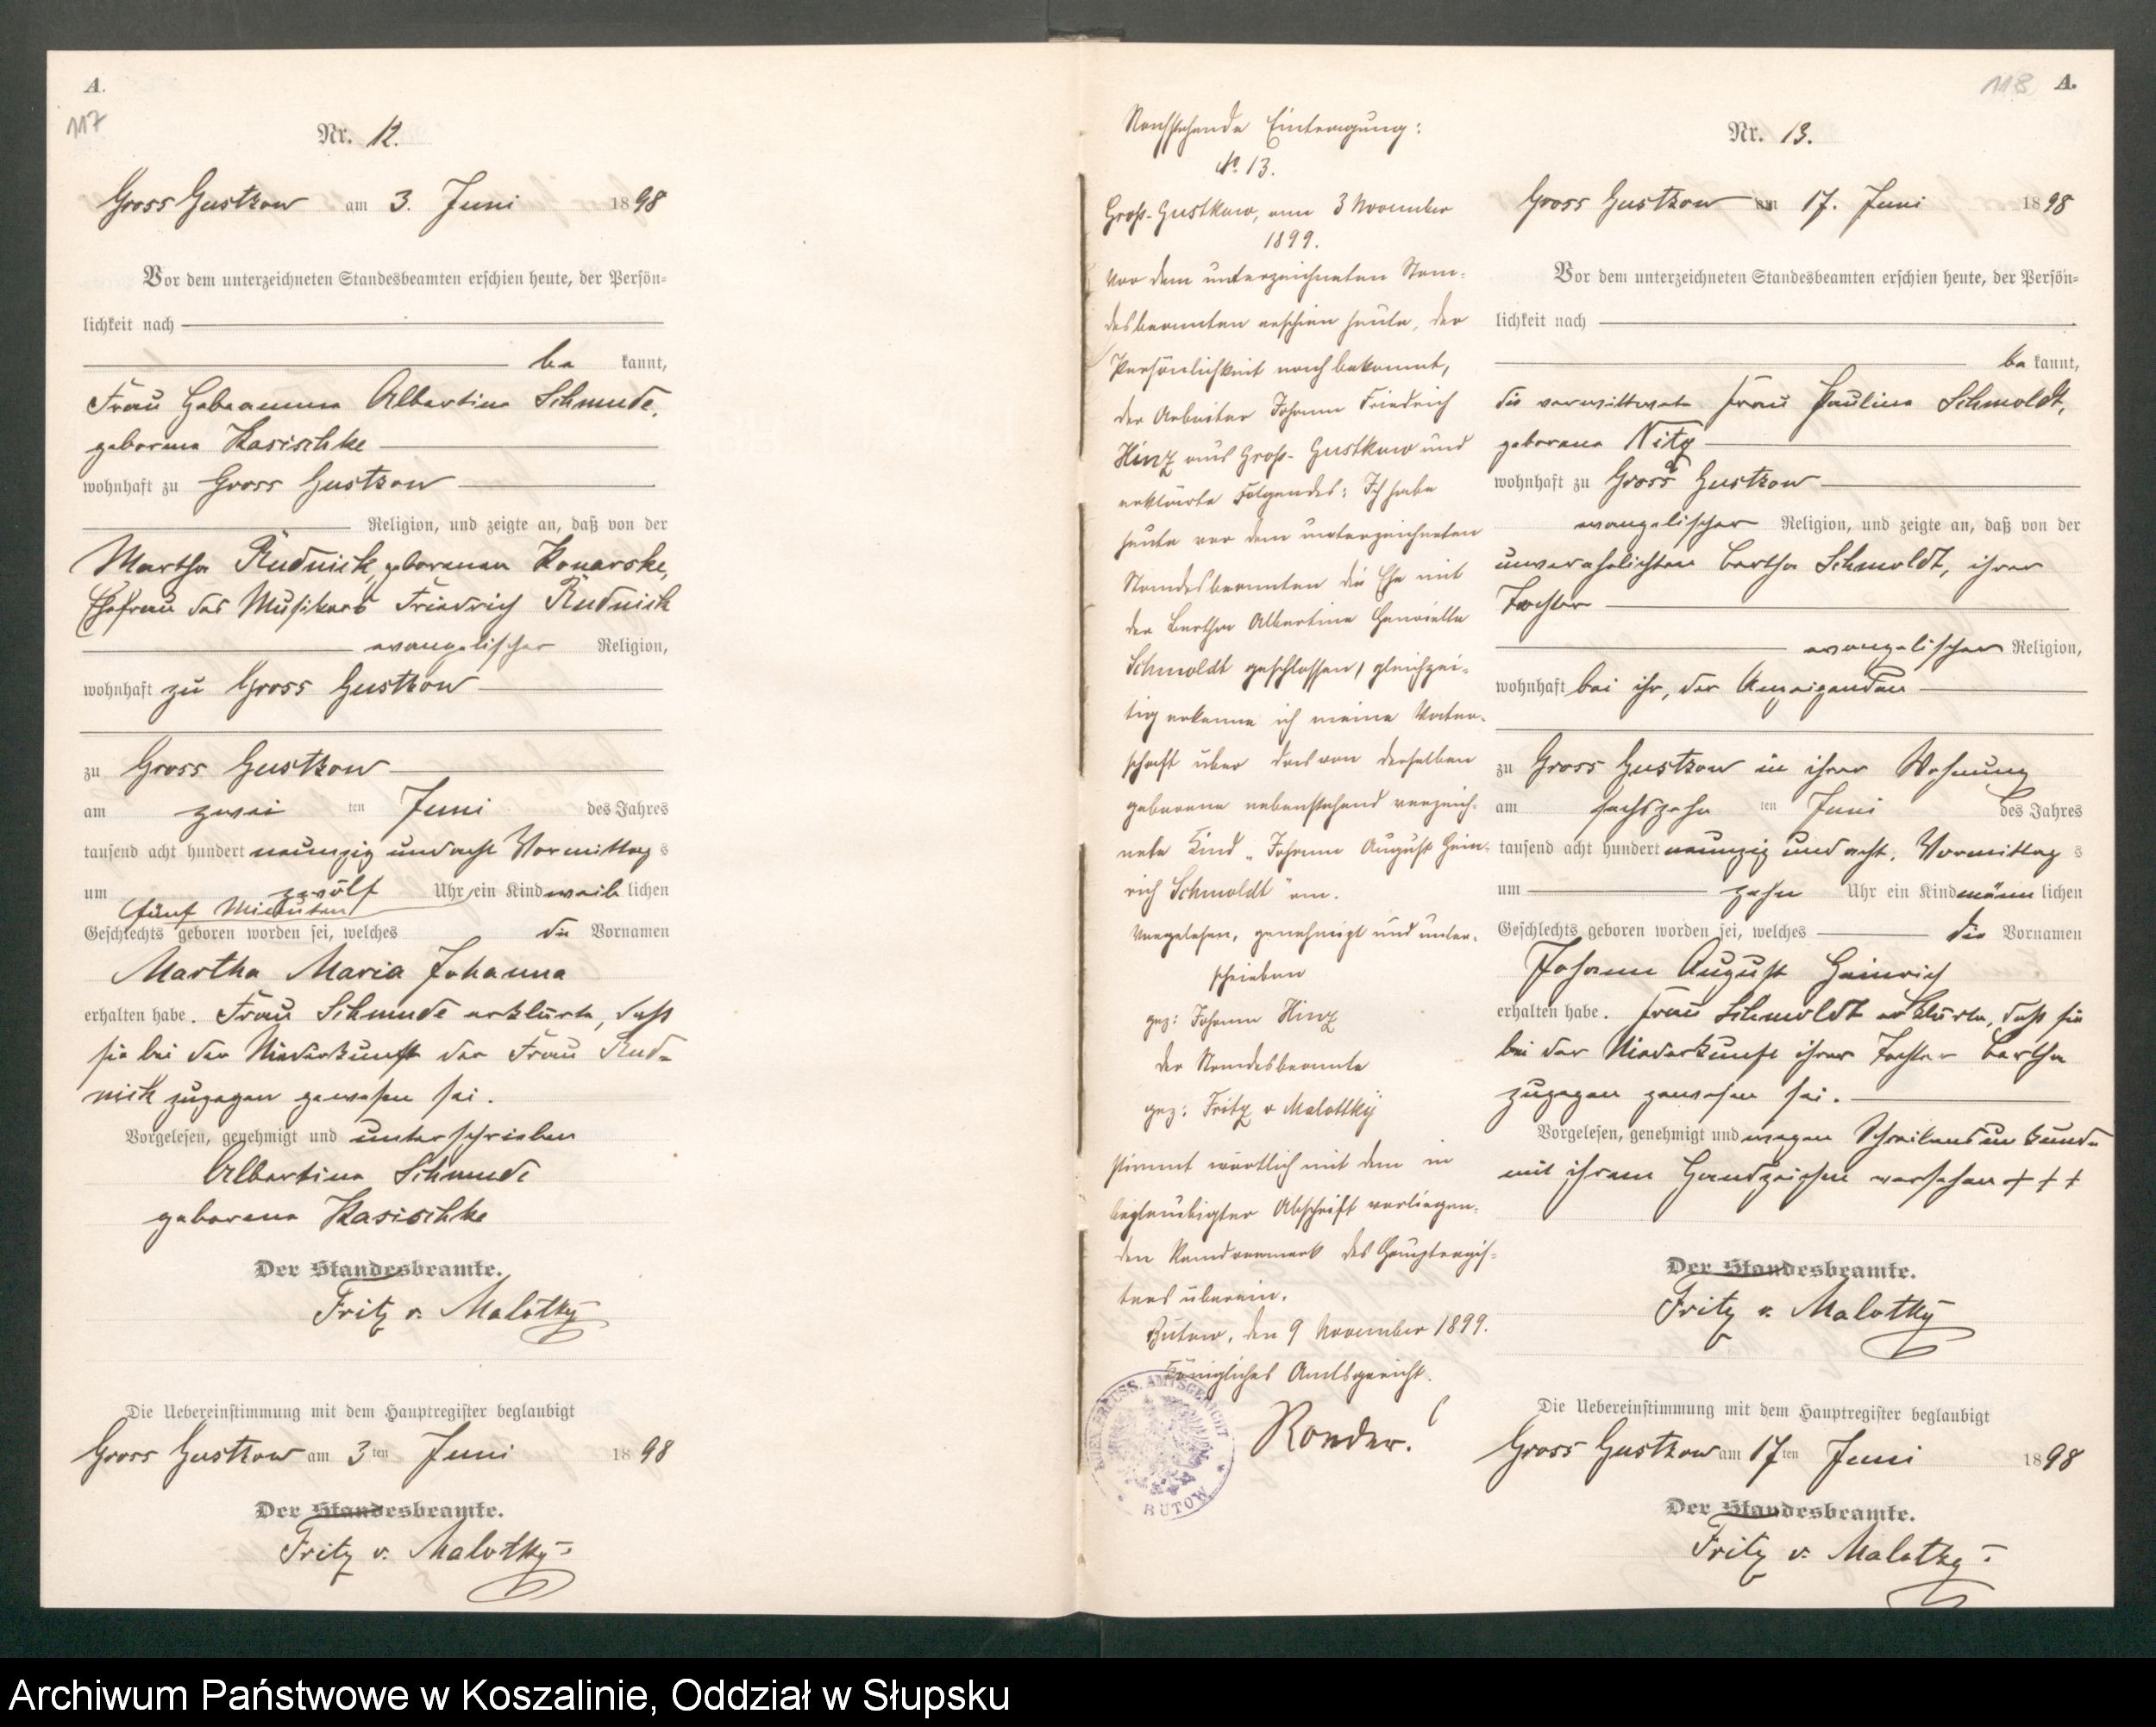 A.
117
Nr. 12.
Gross Gustkow am 3. Juni 1898
Vor dem unterzeichneten Standesbeamten erschien heute, der Persön-
lichkeit nach
be kannt,
Frau Hebeamme Albertine Schmude,
geborene Kasischke
wohnhaft zu Gross Gustkow
Religion, und zeigte an, daß von der
Martha Rudnick, geborenen Konarske,
Ehefrau des Musikers Friedrich Rudnick
evangelischer Religion,
wohnhaft zu Gross Gustkow
zu Gross Gustkow
am zwei ten Juni des Jahres
tausend acht hundert neunzig und acht Vormittag s
um zwölf Uhr ein Kind weib lichen
fünf Minuten
Geschlechts geboren worden sei, welches die Vornamen
Martha Maria Johanna
erhalten habe. Frau Schmude erklärte, daß
sie bei der Niederkunft der Frau Rud-
nick zugegen gewesen sei.
Vorgelesen, genehmigt und unterschrieben
Albertine Schmude
geborene Kasischke
Der Standesbeamte.
Fritz v. Malotky
Die Uebereinstimmung mit dem Hauptregister beglaubigt
Gross Gustkow am 3ten Juni 1898
Der Standesbeamte.
Fritz v. Malotky
Nachstehende Eintragung:
No 13.
Groß-Gustkow, am 3 November
1899.
Vor dem unterzeichneten Stan-
desbeamten erschien heute, der
Persönlichkeit nach bekannt,
der Arbeiter Johann Friedrich
Hinz aus Groß-Gustkow und
erklärte Folgendes: Ich habe
heute vor dem unterzeichneten
Standesbeamten die Ehe mit
der Bertha Albertine Henriette
Schmoldt geschlossen, gleichzei-
tig erkenne ich meine Vater-
schaft über das von derselben
geborene nebenstehend verzeich-
nete Kind „Johann August Hein-
rich Schmoldt" an.
Vorgelesen, genehmigt und unter-
schrieben
gez: Johann Hinz
der Standesbeamte
gez: Fritz v Malottky
stimmt wörtlich mit dem in
beglaubigter Abschrift vorliegen-
den Randvermerk des Hauptregis-
ters überein.
Bütow, den 9 November 1899.
Königliches Amtsgericht.
Roeder.
KOENIGL. PREUSS. AMTSGERICHT
BÜTOW
118 A.
Nr. 13.
Gross Gustkow am 17. Juni 1898
Vor dem unterzeichneten Standesbeamten erschien heute, der Persön-
lichkeit nach
be kannt,
die verwittwete Frau Pauline Schmoldt,
geborene Nitz
wohnhaft zu Gross Gustkow
evangelischer Religion, und zeigte an, daß von der
unverehelichten Bertha Schmoldt, ihrer
Tochter
evangelischen Religion,
wohnhaft bei ihr, der Anzeigenden
zu Gross Gustkow in ihrer Wohnung
am sechszehn ten Juni des Jahres
tausend acht hundert neunzig und acht, Vormittag s
um zehn Uhr ein Kind männ lichen
Geschlechts geboren worden sei, welches die Vornamen
Johann August Heinrich
erhalten habe. Frau Schmoldt erklärte, daß sie
bei der Niederkunft ihrer Tochter Bertha
zugegen gewesen sei.
Vorgelesen, genehmigt und wegen Schreibensunkunde
mit ihrem Handzeichen versehen + + +
Der Standesbeamte.
Fritz v. Malotky
Die Uebereinstimmung mit dem Hauptregister beglaubigt
Gross Gustkow am 17ten Juni 1898
Der Standesbeamte.
Fritz v. Malotky
Archiwum Państwowe w Koszalinie, Oddział w Słupsku